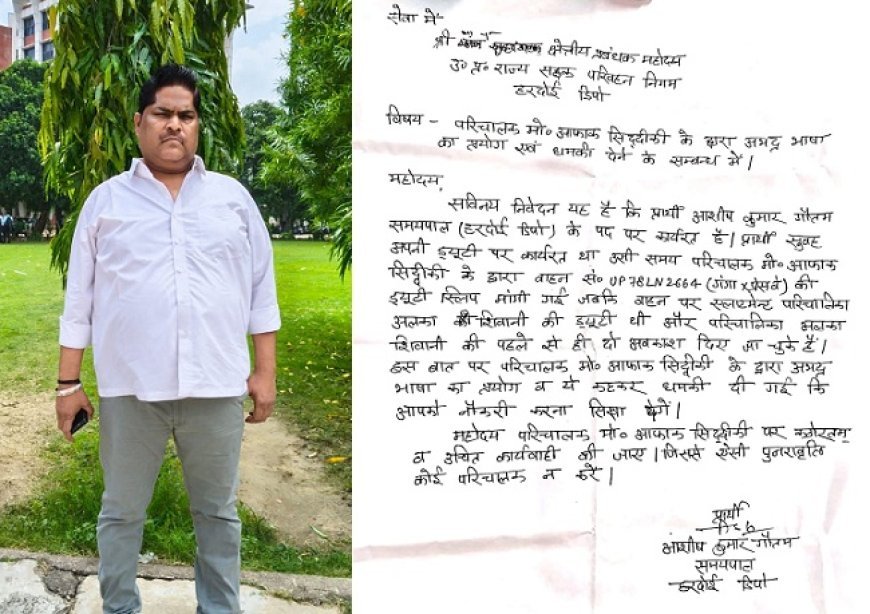 सेवा में
श्री क्षेत्रीय प्रबंधक महोदय
उ० प्र० राज्य सड़क परिवहन निगम
हरदोई डिपो
विषय - परिचालक मो० आफाक सिद्दीकी के द्वारा अभद्र भाषा
का प्रयोग एवं धमकी देने के सम्बन्ध में।
महोदय,
सविनय निवेदन यह है कि प्रार्थी आशीष कुमार गौतम
समयपाल (हरदोई डिपो) के पद पर कार्यरत है। प्रार्थी सुबह
अपनी ड्यूटी पर कार्यरत था उसी समय परिचालक मो० आफाक
सिद्दीकी के द्वारा वाहन सं० UP78LN2664 (गंगा ) की
ड्यूटी स्लिप मांगी गई जबकि वाहन पर परिचालिका
अलका शिवानी की ड्यूटी थी और परिचालिका अलका
शिवानी की पहले से ही दो अवकाश दिए जा चुके हैं।
इस बात पर परिचालक मो० आफाक सिद्दीकी के द्वारा अभद्र
भाषा का प्रयोग व ये कहकर धमकी दी गई कि
आपको नौकरी करना सिखा देगें।
महोदय परिचालक मो० आफाक सिद्दीकी पर कठोरतम्
व उचित कार्यवाही की जाए। जिससे ऐसी पुनरावृति
कोई परिचालक न करें।
प्रार्थी
आशीष कुमार गौतम
समयपाल
हरदोई डिपो